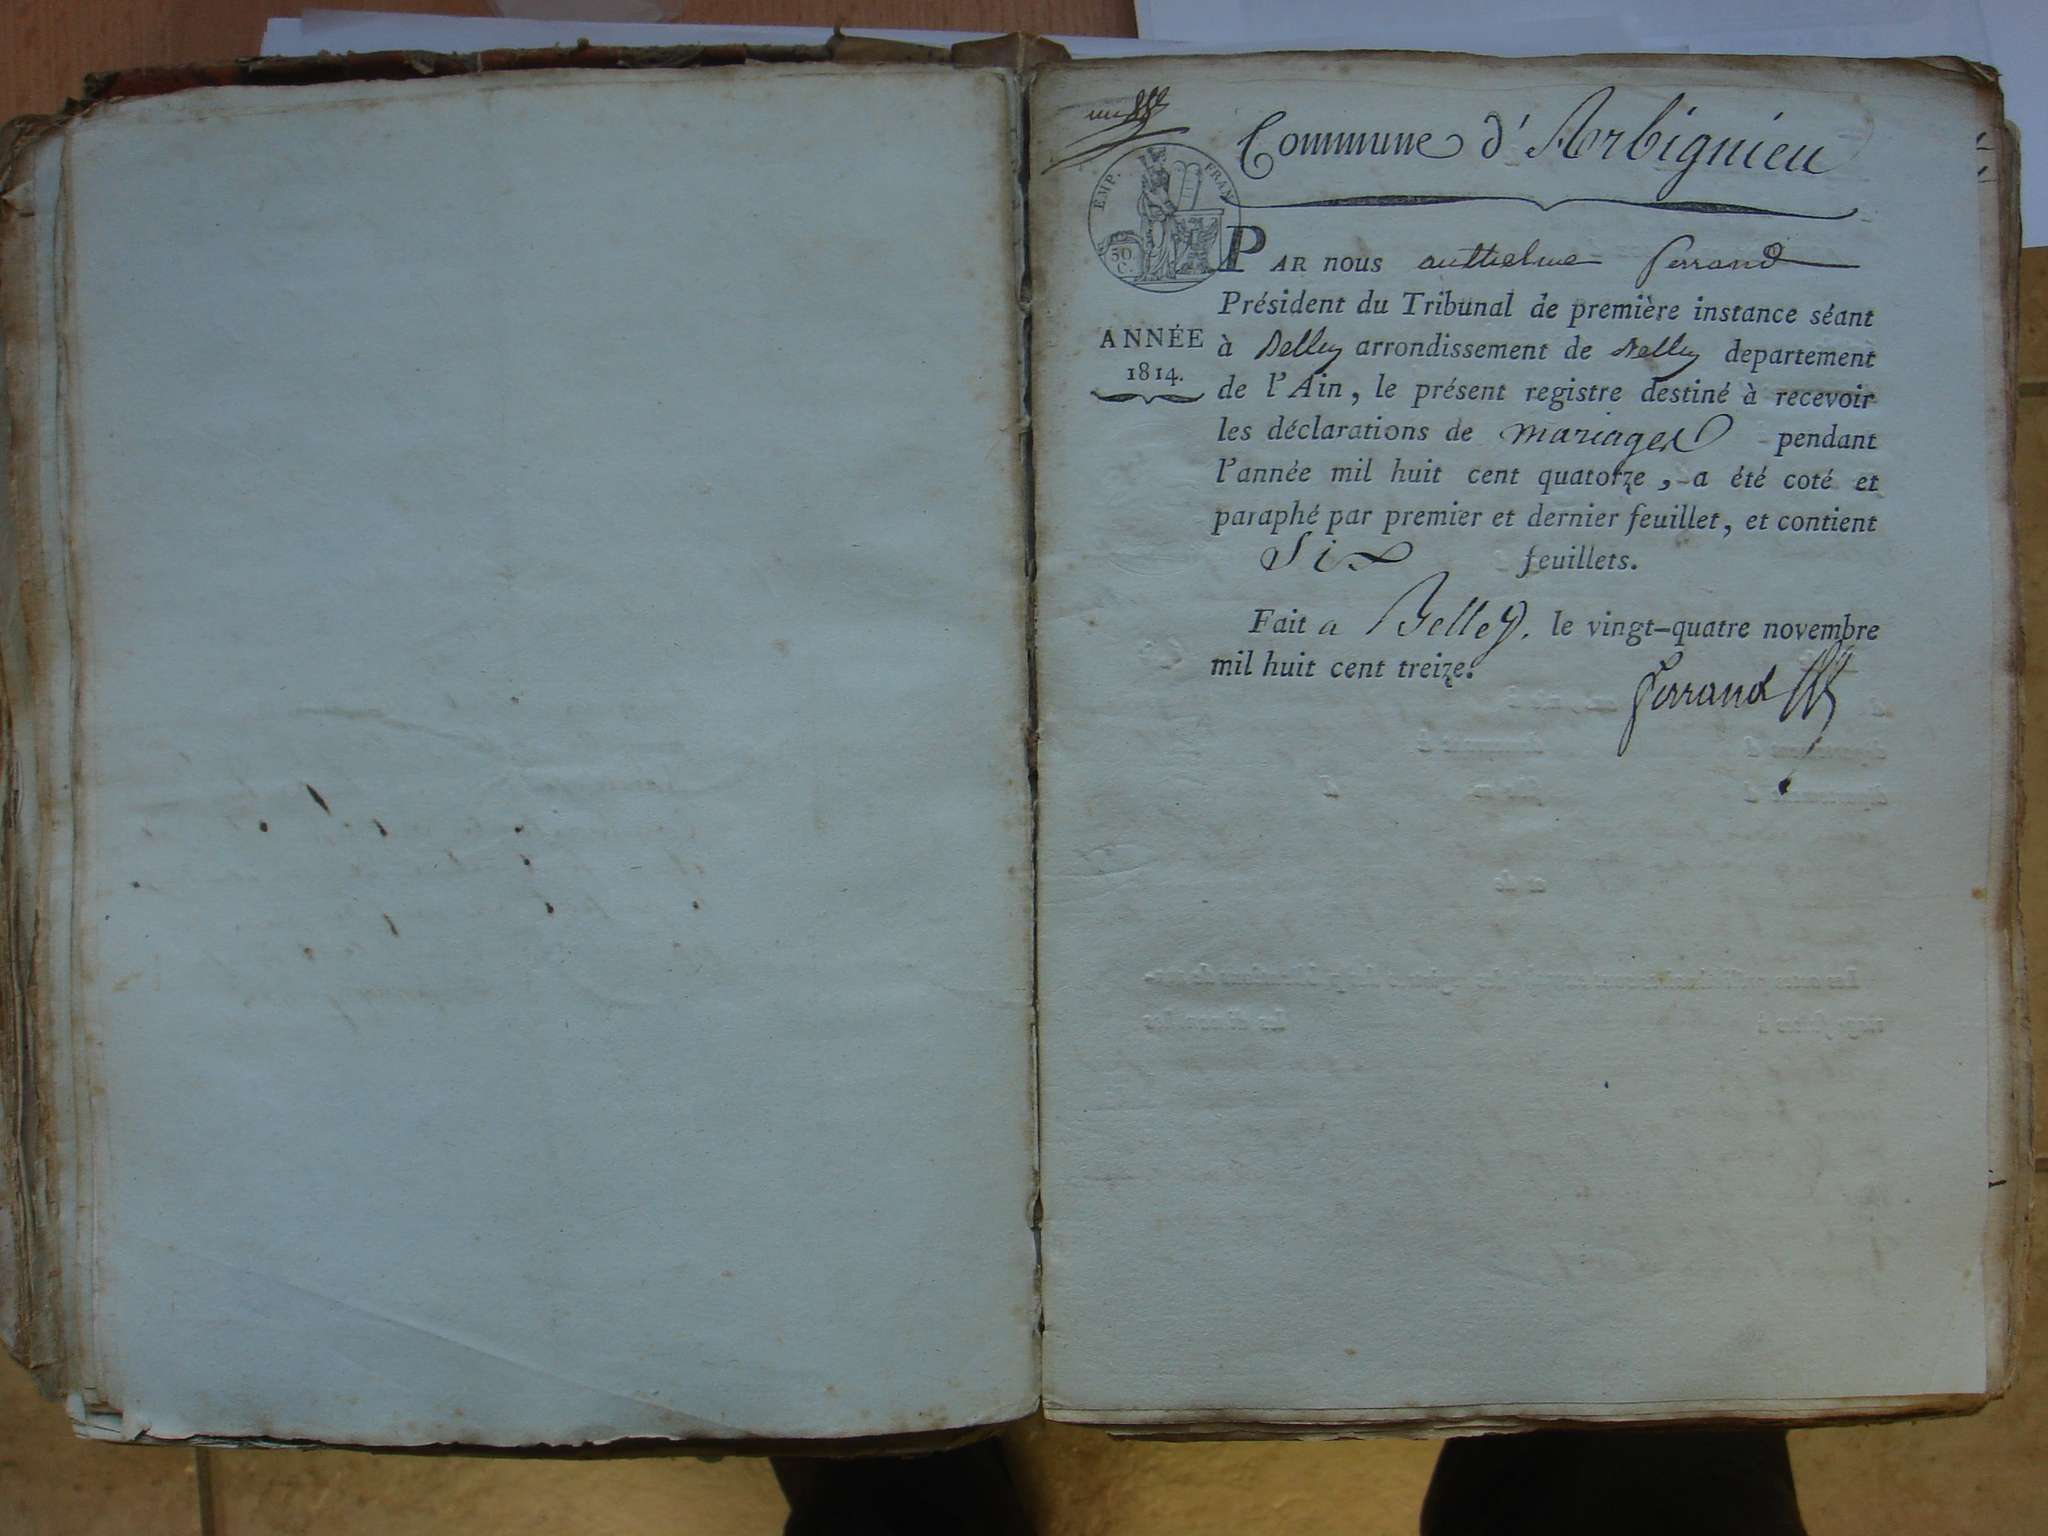 Commune d'Arbignieu
EMP. FRAN
50
C.
PAR nous anthelme ferrand
Président du Tribunal de première instance séant
ANNÉE
1814.
à Belley arrondissement de Belley departement
de l'Ain, le présent registre destiné à recevoir
les déclarations de mariages pendant
l'année mil huit cent quatorze, a été coté et
paraphé par premier et dernier feuillet, et contient
Six feuillets.
Fait a Belley. le vingt-quatre novembre
mil huit cent treize.
ferrand